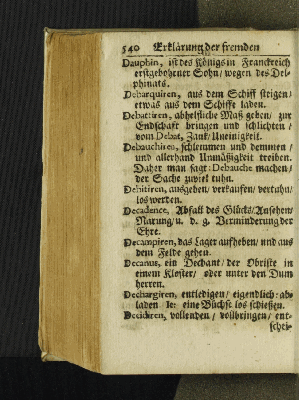 540 Erklärung der fremden
Dauphin, ist des Königs in Franckreich
erstgebohrner Sohn/ wegen des Del-
phinats.
Debarquiren, aus dem Schiff steigen/
etwas aus dem Schiffe laden.
Debattiren, abhelfliche Maß geben/ zur
Endschafft bringen und schlichten/
vom Debat, Zank/ Uneinigkeit.
Debauchiren, schlemmen und demmen/
und allerhand Unmäßigkeit treiben.
Daher man sagt: Debauche machen/
der Sache zuviel tuhn.
Debitiren, ausgeben/ verkaufen/ vertuhn/
los werden.
Decadence, Abfall des Glücks/ Ansehen/
Narung/ u. d. g. Verminderung der
Ehre.
Decampiren, das Lager aufheben/ und aus
dem Felde gehen.
Decanus, ein Dechant/ der Obriste in
einem Kloster/ oder unter den Dum
herren.
Dechargiren, entledigen/ eigendlich: ab-
laden Ie: eine Büchse los schießen.
Decidiren, vollenden/ vollbringen/ ent-
schei-